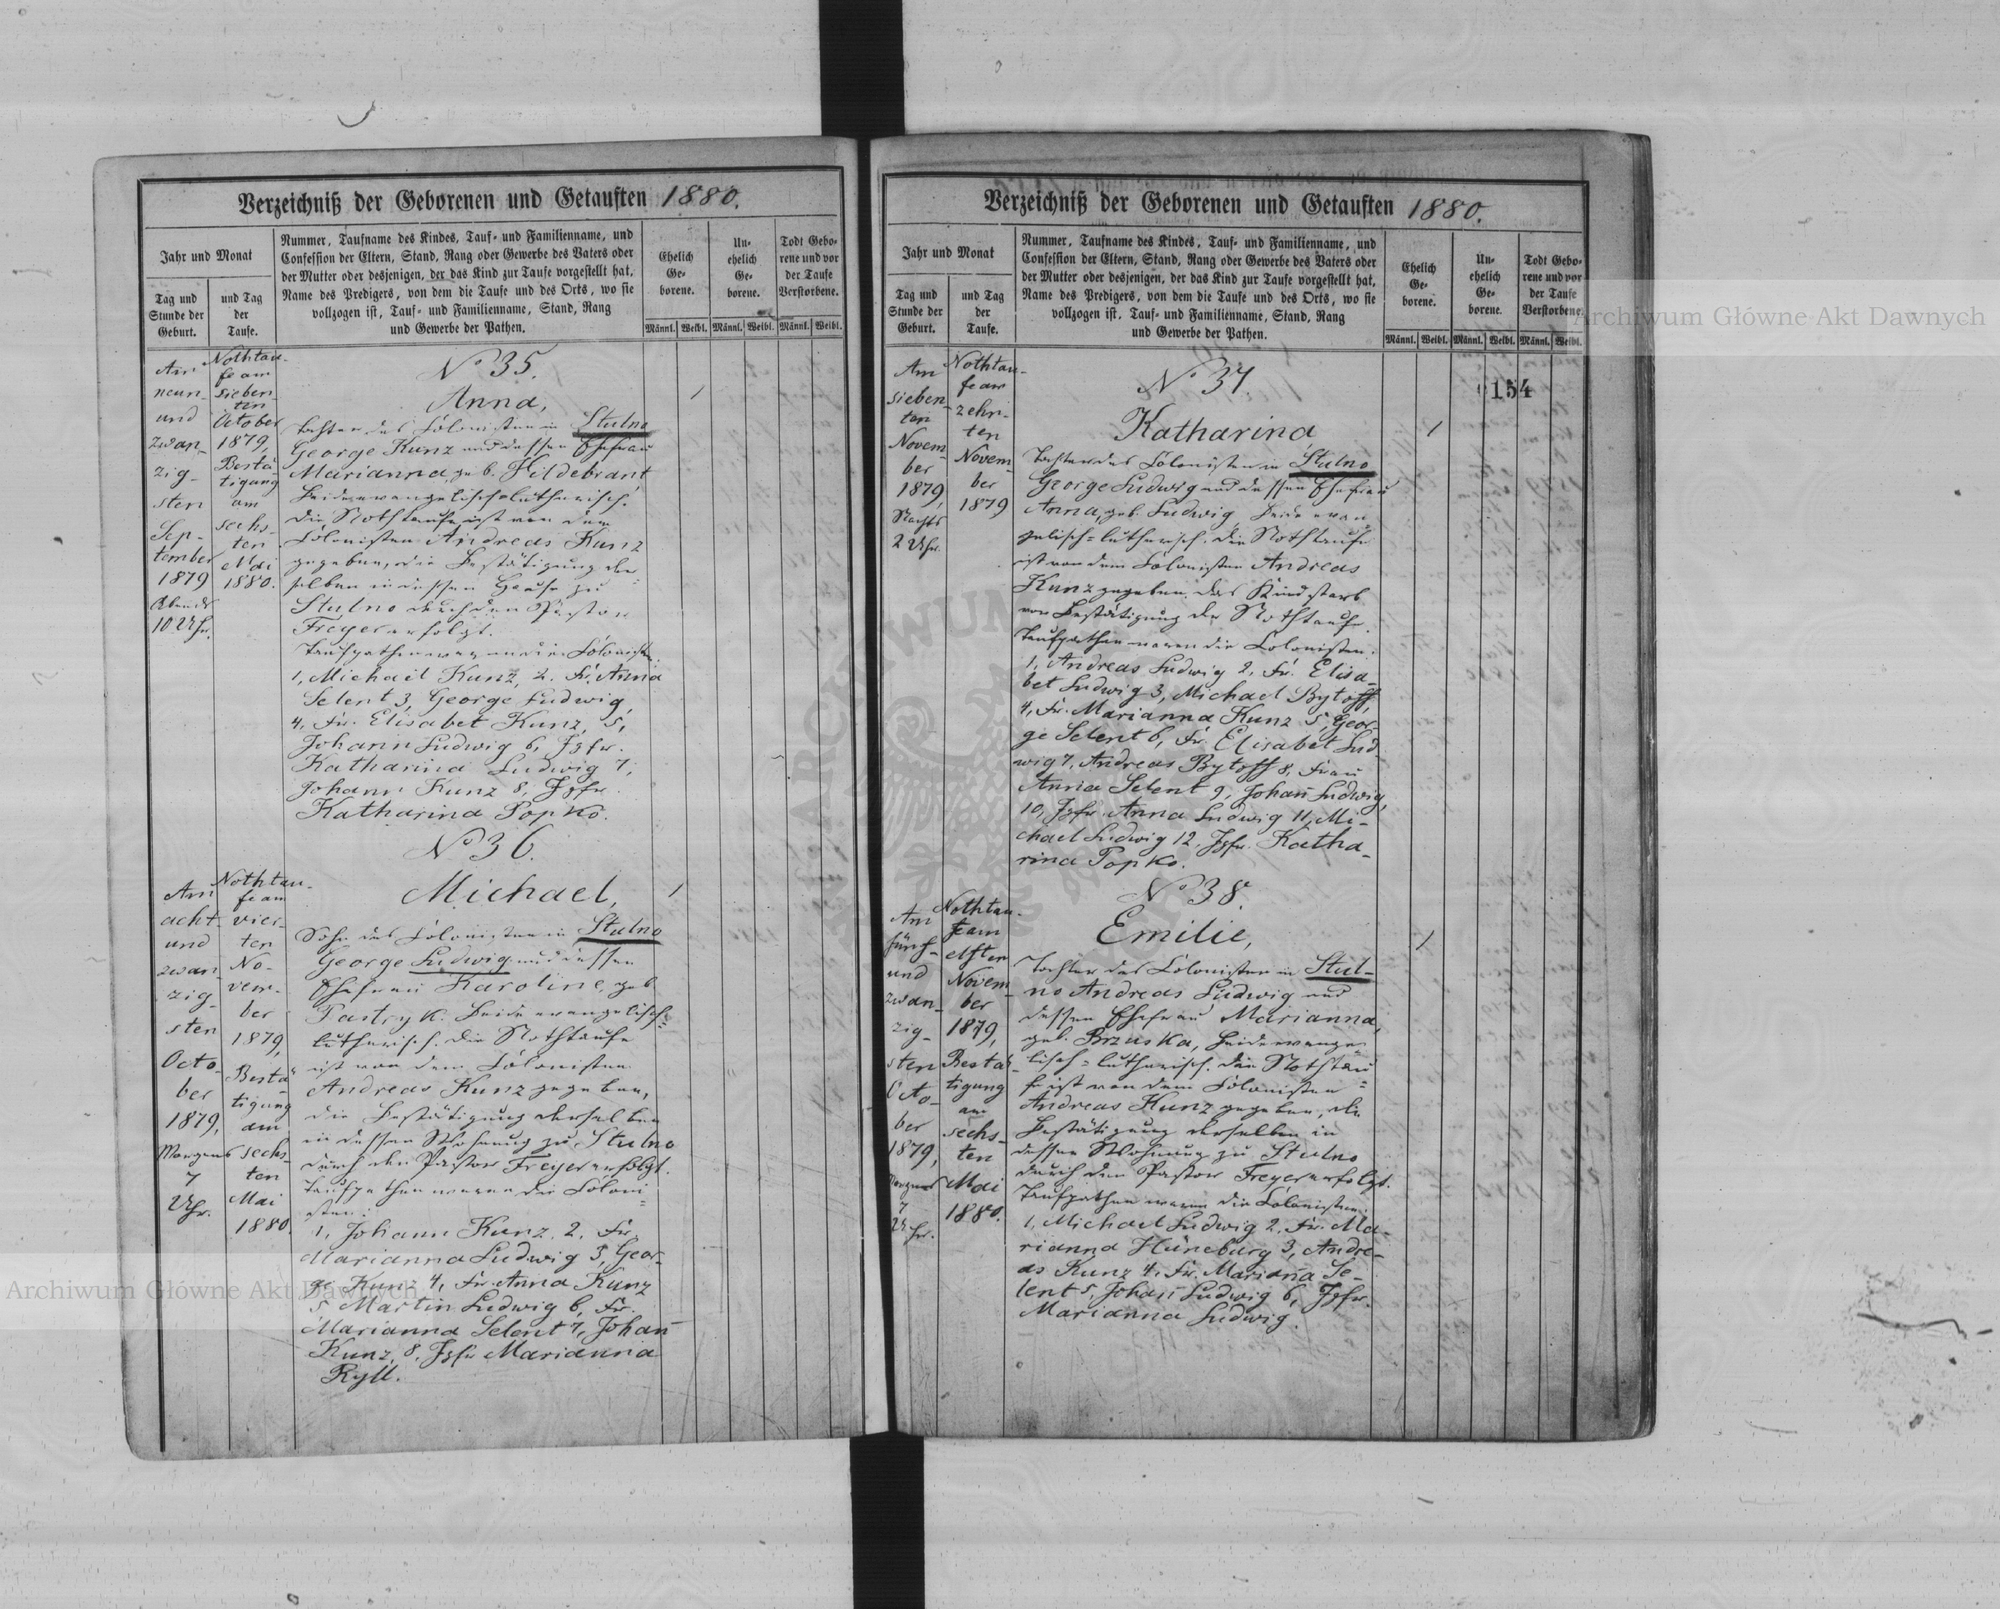 Verzeichniß der Geborenen und Getauften 1880.
Jahr und Monat
Tag und
Stunde der
Geburt.
und Tag
der
Taufe.
Nummer, Taufname des Kindes, Tauf- und Familienname, und
Confession der Eltern, Stand, Rang oder Gewerbe des Vaters oder
der Mutter oder desjenigen, der das Kind zur Taufe vorgestellt hat,
Name des Predigers, von dem die Taufe und des Orts, wo sie
vollzogen ist, Tauf- und Familienname, Stand, Rang
und Gewerbe der Pathen.
Ehelich
Ge-
borene.
Un-
ehelich
Ge-
borene.
Todt Gebo-
rene und vor
der Taufe
Verstorbene.
Männl. Weibl. Männl. Weibl. Männl. Weibl.
Am
neun-
und
zwan-
zig-
sten
Sep-
tember
1879
Abends
10 Uhr.
Nothtau-
fe am
sieben-
ten
October
1879,
Bestä-
tigung
am
sechs-
ten
Mai
1880.
No 35.
Anna,
Tochter des Colonisten in Stulno
George Kunz und dessen Ehefrau
Marianna, geb. Hildebrant,
Beide evangelisch lutherisch.
Die Nothtaufe ist von dem
Colonisten Andreas Kunz
gegeben, die Bestätigung der-
selben in dessen Hause zu
Stulno durch den Pastor
Freyer erfolgt.
Taufpathen waren die Colonisten
1, Michael Kunz, 2. Fr. Anna
Selent 3, George Ludwig,
4, Fr. Elisabet Kunz, 5,
Johann Ludwig 6, Jgfr.
Katharina Ludwig 7,
Johann Kunz 8, Jgfr.
Katharina Popko.
Am
acht-
und
zwan
zig-
sten
Octo-
ber
1879,
Morgens
7
Uhr.
Nothtau-
fe am
vier-
ten
No-
vem-
ber
1879,
Bestä-
tigung
am
sechs-
ten
Mai
1880.
No 36.
Michael,
Sohn des Colonisten in Stulno
George Ludwig und dessen
Ehefrau Karoline, geb
Pastryk. Beide evangelisch-
lutherisch. Die Nothtaufe
ist von dem Colonisten
Andreas Kunz gegeben,
die Bestätigung derselben
in dessen Wohnung zu Stulno
durch den Pastor Freyer erfolgt.
Taufpathen waren die Coloni-
sten:
1, Johann Kunz, 2, Fr.
Marianna Ludwig 3, Geor-
ge Kunz 4, Fr. Anna Kunz
5 Martin Ludwig 6, Fr.
Marianna Selent 7, Johan̄
Kunz, 8, Jgfr Marianna
Ryll.
Verzeichniß der Geborenen und Getauften 1880.
Jahr und Monat
Tag und
Stunde der
Geburt.
und Tag
der
Taufe.
Nummer, Taufname des Kindes, Tauf- und Familienname, und
Confession der Eltern, Stand, Rang oder Gewerbe des Vaters oder
der Mutter oder desjenigen, der das Kind zur Taufe vorgestellt hat,
Name des Predigers, von dem die Taufe und des Orts, wo sie
vollzogen ist, Tauf- und Familienname, Stand, Rang
und Gewerbe der Pathen.
Ehelich
Ge-
borene.
Un-
ehelich
Ge-
borene.
Todt Gebo-
rene und vor
der Taufe
Verstorbene.
Männl. Weibl. Männl. Weibl. Männl. Weibl.
154
Am
sieben-
ten
Novem-
ber
1879,
Nachts
2 Uhr.
Nothtau-
fe am
zehn-
ten
Novem-
ber
1879
No 37.
Katharina
Tochter des Colonisten in Stulno
George Ludwig und dessen Ehefrau
Anna, geb. Ludwig, Beide evan-
gelisch-lutherisch. Die Nothtaufe
ist von dem Colonisten Andreas
Kunz gegeben. Das Kind starb
vor Bestätigung der Nothtaufe.
Taufpathen waren die Colonisten:
1, Andreas Ludwig 2, Fr. Elisa-
bet Ludwig 3, Michael Bytoff,
4, Fr. Marianna Kunz 5, Geor-
ge Selent 6, Fr. Elisabet Lud-
wig 7, Andreas Bytoff 8, Frau
Anna Selent 9, Johan̄ Ludwig,
10, Jgfr. Anna Ludwig 11, Mi-
chael Ludwig 12, Jgfr. Katha-
rina Popko.
Am
fünf-
und
zwan-
zig-
sten
Octo-
ber
1879,
Morgens
7
Uhr.
Nothtau-
fe am
elften
Novem-
ber
1879,
Bestä-
tigung
am
sechs-
ten
Mai
1880.
No 38.
Emilie,
Tochter des Colonisten in Stul-
no Andreas Ludwig und
dessen Ehefrau Marianna,
geb. Brzuska, Beide evange-
lisch-lutherisch. Die Nothtau-
fe ist von dem Colonisten
Andreas Kunz gegeben, die
Bestätigung derselben in
dessen Wohnung zu Stulno
durch den Pastor Freyer erfolgt.
Taufpathen waren die Colonisten:
1, Michael Ludwig 2, Fr. Ma-
rianna Hüneburg 3, Andre-
as Kunz 4, Fr. Marian̄a Se-
lent 5, Johan̄ Ludwig 6, Jgfr.
Marianna Ludwig.
Archiwum Główne Akt Dawnych
Archiwum Główne Akt Dawnych